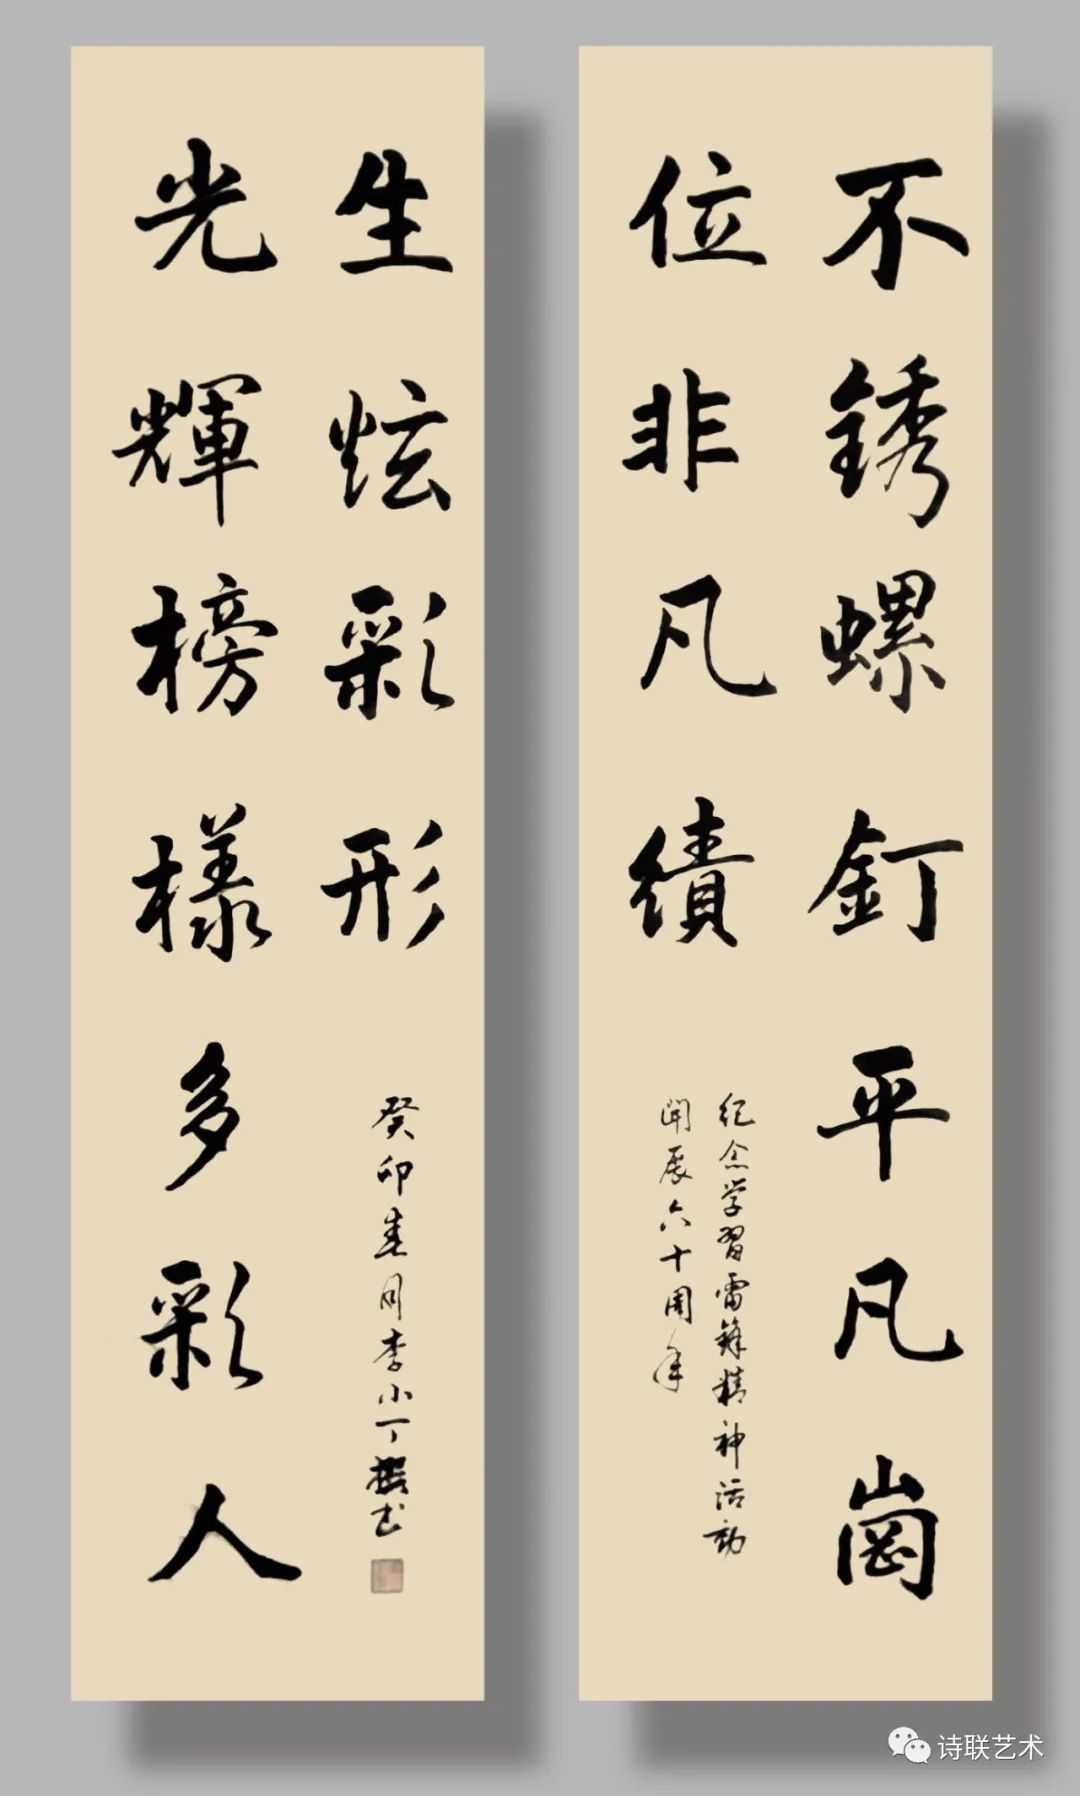 不銹螺釘平凡崗
位非凡績
纪念学習雷鋒精神活動
開展六十周年
光輝榜樣多彩人
生炫彩形
癸卯春月李小丁撰书
诗联艺术